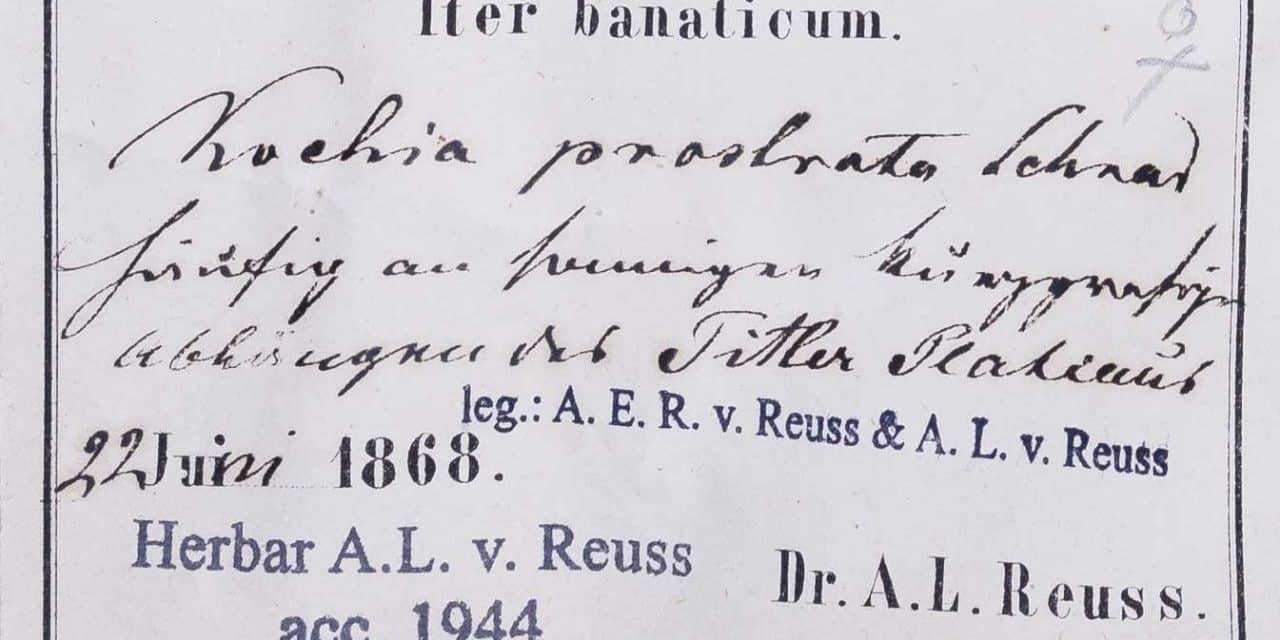 Iter banaticum.
Kochia prostrata Schrad
häufig an sonnigen kurzgrasigen
Abhängen des Titler Plateaus
leg.: A. E. R. v. Reuss & A. L. v. Reuss
22 Juni 1868.
Herbar A.L. v. Reuss
Dr. A. L. Reuss.
acc. 1944